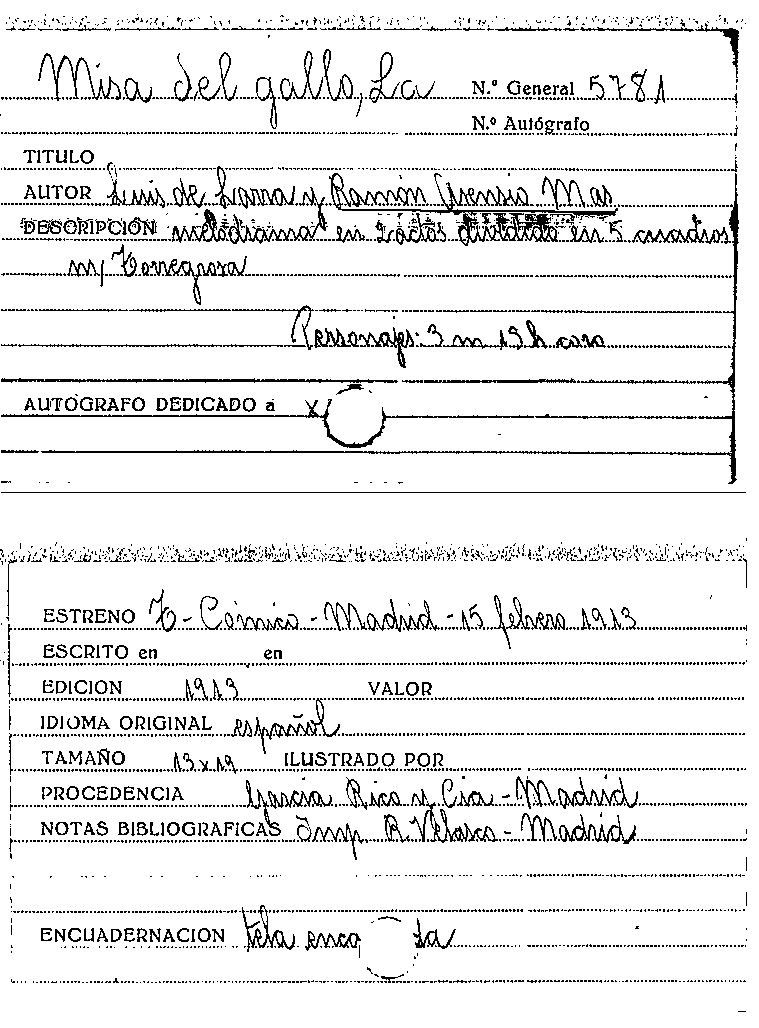 Misa del gallo, La N.º General 5781
N.º Autógrafo
TITULO
AUTOR Luis de Larra y Ramón Asensio Mas
DESCRIPCIÓN melodrama en 2 actos dividido en 5 cuadros
m/ Torregrosa
Personajes: 3 m 19 h coro
AUTÓGRAFO DEDICADO a X
ESTRENO T- Cómico - Madrid - 15 febrero 1913
ESCRITO en en
EDICION 1913 VALOR
IDIOMA ORIGINAL español
TAMAÑO 13 x 19 ILUSTRADO POR
PROCEDENCIA García Rico y Cía - Madrid
NOTAS BIBLIOGRAFICAS Imp. R. Velasco - Madrid
ENCUADERNACION tela enco da